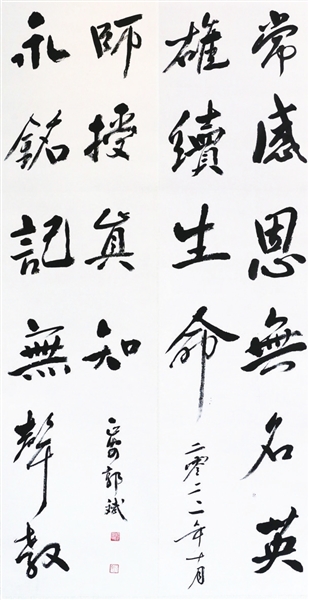 常感恩無名英
雄續生命
二零二二年十月
永銘記無聲教
師授真知
郭斌